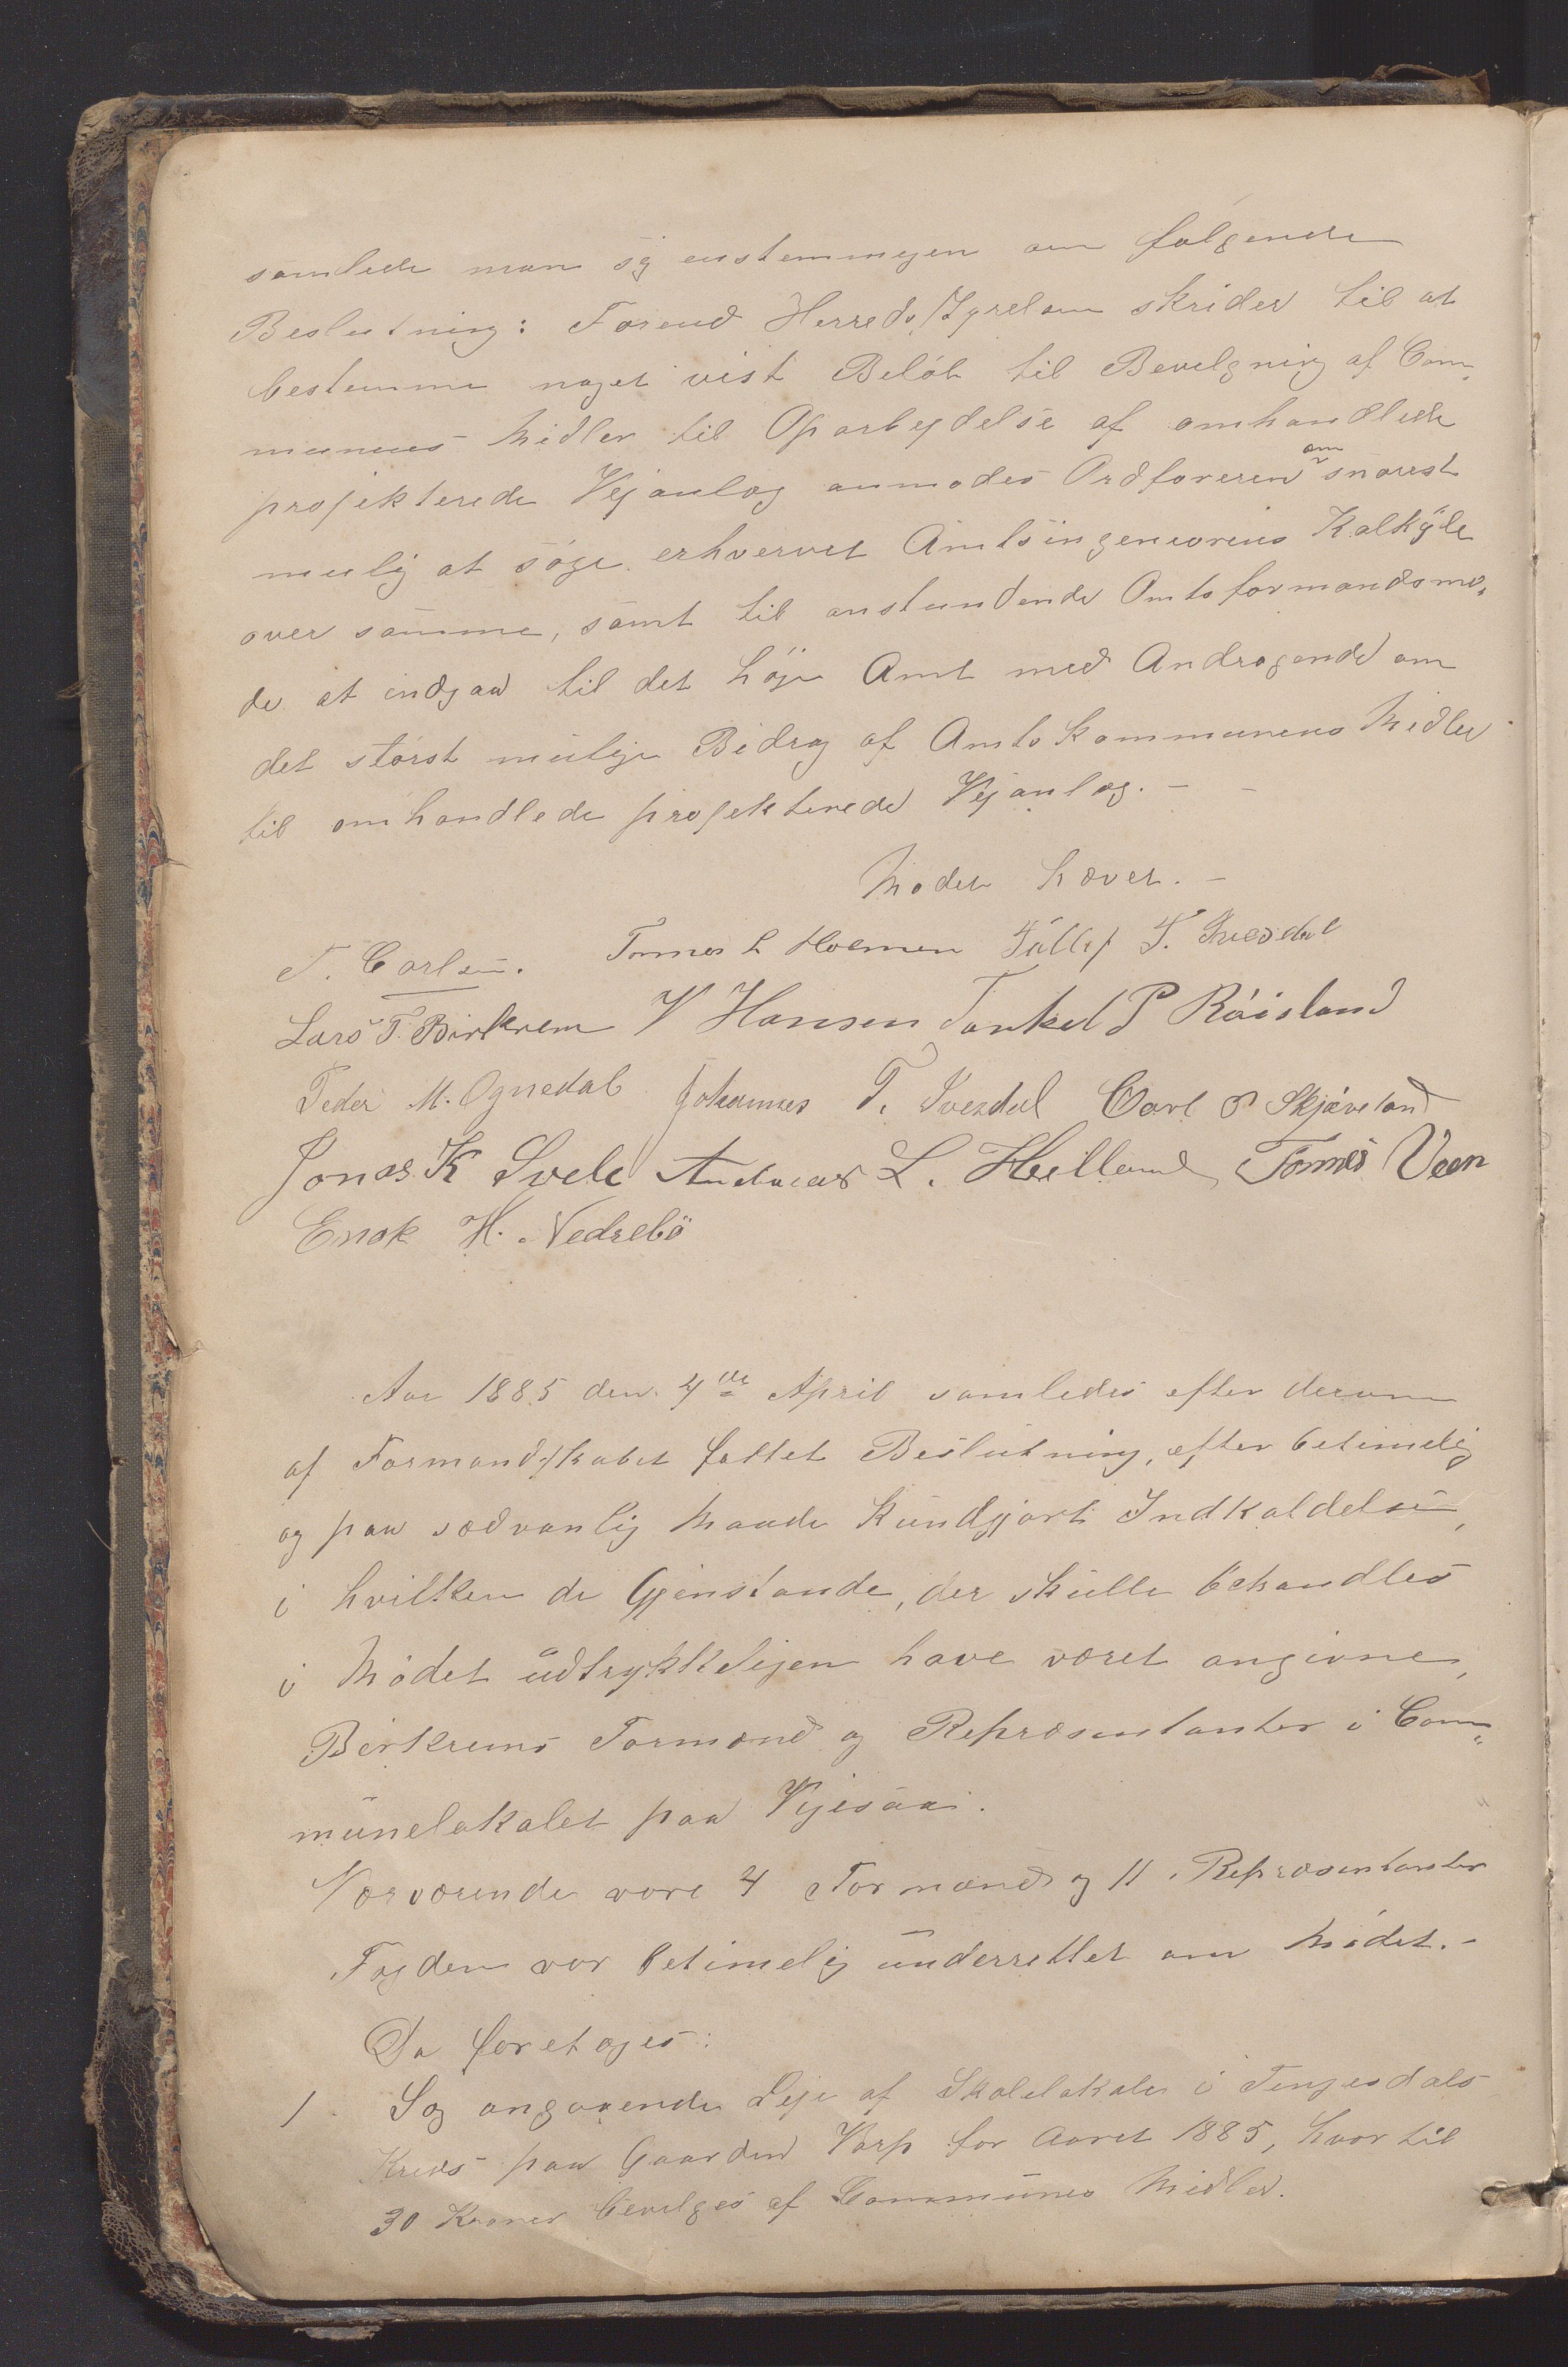 samlede man sig enstemmigen om følgende
Beslutning: Forend Herredsstyrelsen skrider til at
bestemme noget vist Beløb til Bevilgning af Com„
munens Midler til Oparbejdelse af omhandlede
projekterede Vejanlæg anmodes Ordføreren om snarest
mulig at søge erhvervet Amtsingeneurens Kalkyle
over samme, samt til anstundende Amtsformandsmø„
de at indgaa til det høje Amt med Andragende om
det størst mulige Bidrag af Amtskommunens Midler
til omhandlede projekterede Vejanlæg. –
Mødet hævet. –
T. Carlsen. Tønnes L Hoemen Tollef T. Ivesdal
Lars T. Birkrem V Hansen Torkel P Röisland
Peder M. Ognedal Johannes T. Ivesdal Carl P Skjæveland
Jonas K Svele Andreas L. Helland Tønnes Veen
Enok H. Nedrebö
Aar 1885 den 4de April samledes efter derom
af Formandskabet fattet Beslutning, efter betimelig
og paa sædvanlig Maade kundgjort Indkaldelse,
i hvilken de Gjenstande, der skulle behandles
i Mødet udtrykkeligen have været angivne,
Birkrems Formænd og Repræsentanter i Com„
munelokalet paa Vigesaa.
Nærværende vare 4 Formænd og 11 Repræsentanter
Fogden var betimelig underrettet om Mødet. –
Da foretoges:
1. Sag angaaende Leje af Skolelokale i Tengesdals
Kreds paa Gaarden Varp for Aaret 1885, hvortil
30 Kroner bevilges af Communes Midler.